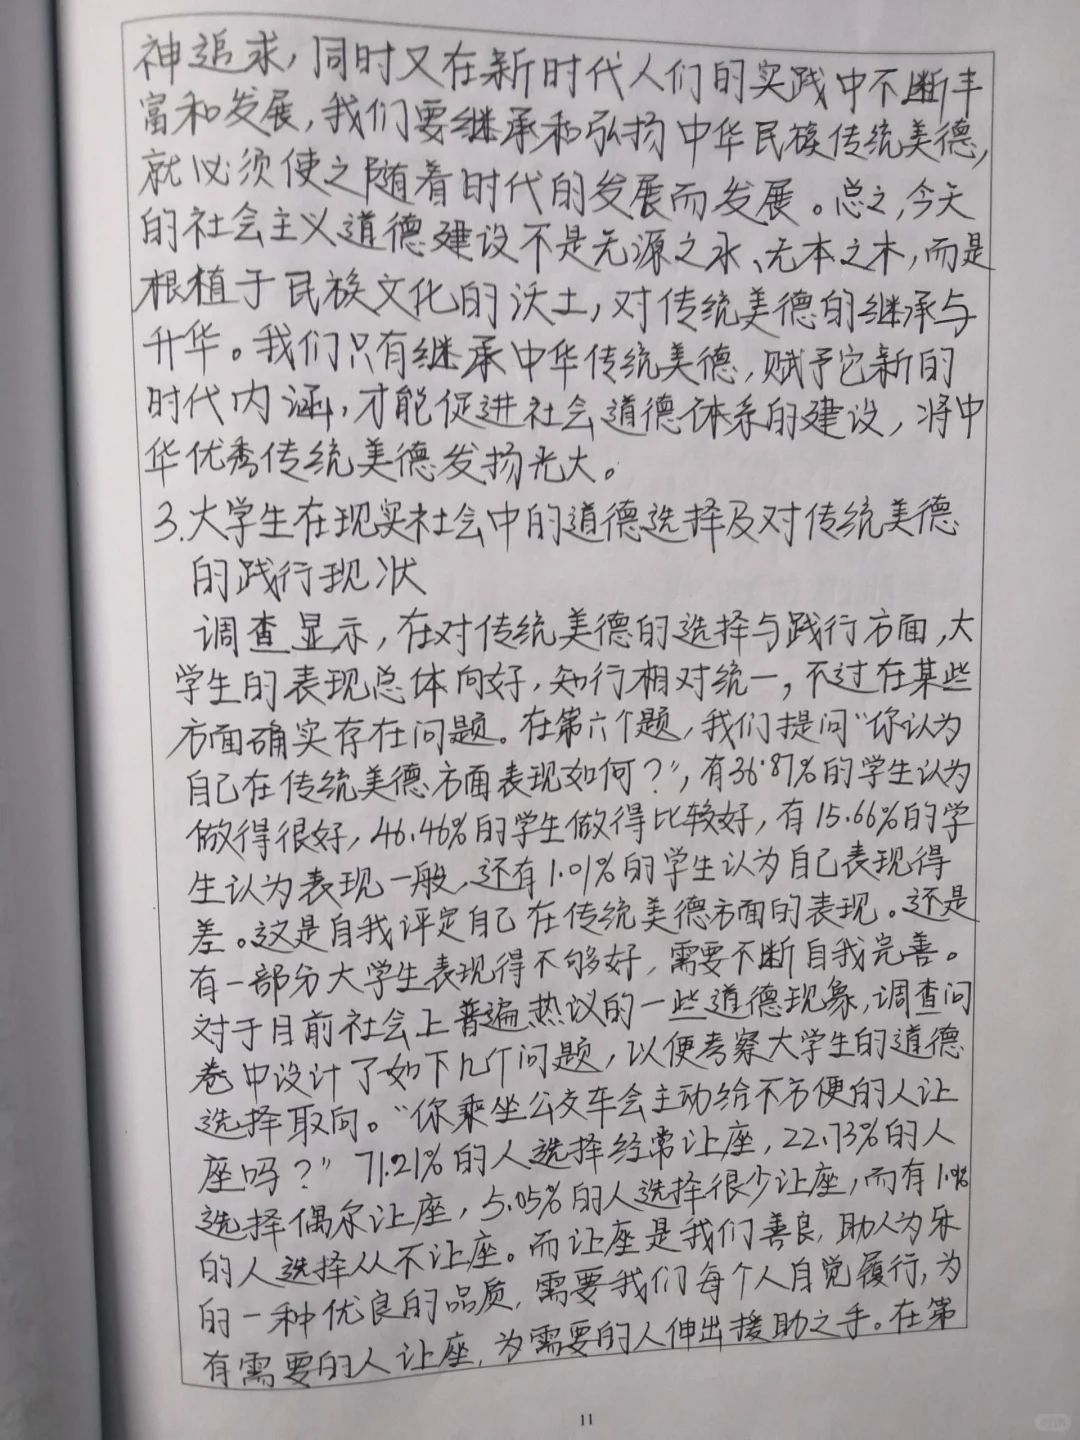 神追求，同时又在新时代人们的实践中不断丰
富和发展，我们要继承和弘扬中华民族传统美德，
就必须使之随着时代的发展而发展。总之，今天
的社会主义道德建设不是无源之水、无本之木，而是
根植于民族文化的沃土，对传统美德的继承与
升华。我们只有继承中华传统美德，赋予它新的
时代内涵，才能促进社会道德体系的建设，将中
华优秀传统美德发扬光大。
3.大学生在现实社会中的道德选择及对传统美德
的践行现状
调查显示，在对传统美德的选择与践行方面，大
学生的表现总体向好，知行相对统一，不过在某些
方面确实存在问题。在第六个题，我们提问“你认为
自己在传统美德方面表现如何？”，有36.87%的学生认为
做得很好，46.46%的学生做得比较好，有15.66%的学
生认为表现一般，还有1.01%的学生认为自己表现得
差。这是自我评定自己在传统美德方面的表现。还是
有一部分大学生表现得不够好，需要不断自我完善。
对于目前社会上普遍热议的一些道德现象，调查问
卷中设计了如下几个问题，以便考察大学生的道德
选择取向。“你乘坐公交车会主动给不方便的人让
座吗？”71.21%的人选择经常让座，22.73%的人
选择偶尔让座，5.05%的人选择很少让座，而有1.%
的人选择从不让座。而让座是我们善良，助人为乐
的一种优良的品质，需要我们每个人自觉履行，为
有需要的人让座，为需要的人伸出援助之手。在第
11